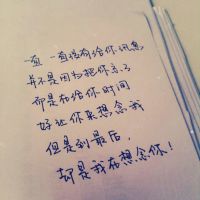 一直 一直没有给你讯息
并不是因为把你忘了
都是在给你时间
好让你来想念我
但是到最后，
却是我在想念你！